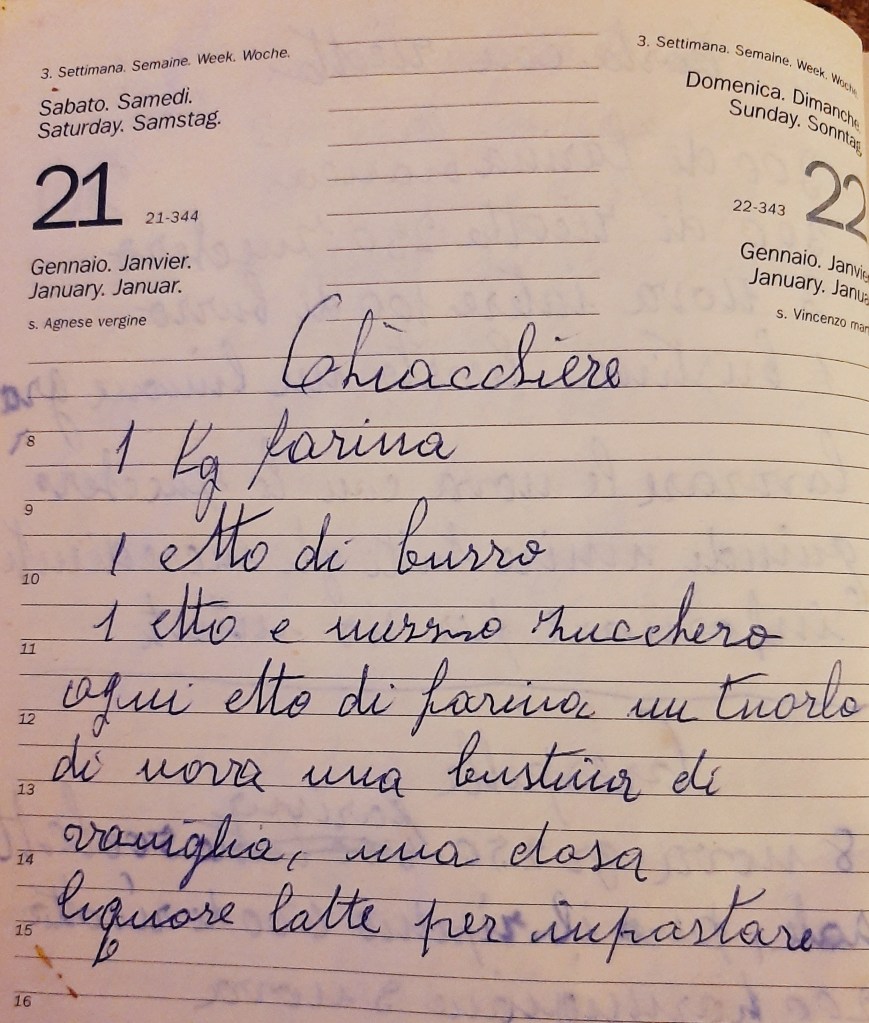 3. Settimana. Semaine. Week. Woche.
Sabato. Samedi.
Saturday. Samstag.
21 21-344
Gennaio. Janvier.
January. Januar.
s. Agnese vergine
3. Settimana. Semaine. Week. Woche.
Domenica. Dimanche.
Sunday. Sonntag
22-343 22
Gennaio. Janvie
January. Janua
s. Vincenzo mar
Chiacchiere
8
1 Kg farina
9
1 etto di burro
10
1 etto e mezzo zucchero
11
ogni etto di farina un tuorlo
12
di uova una bustina di
13
vaniglia, una dosa
14
liquore latte per impastare
15
16